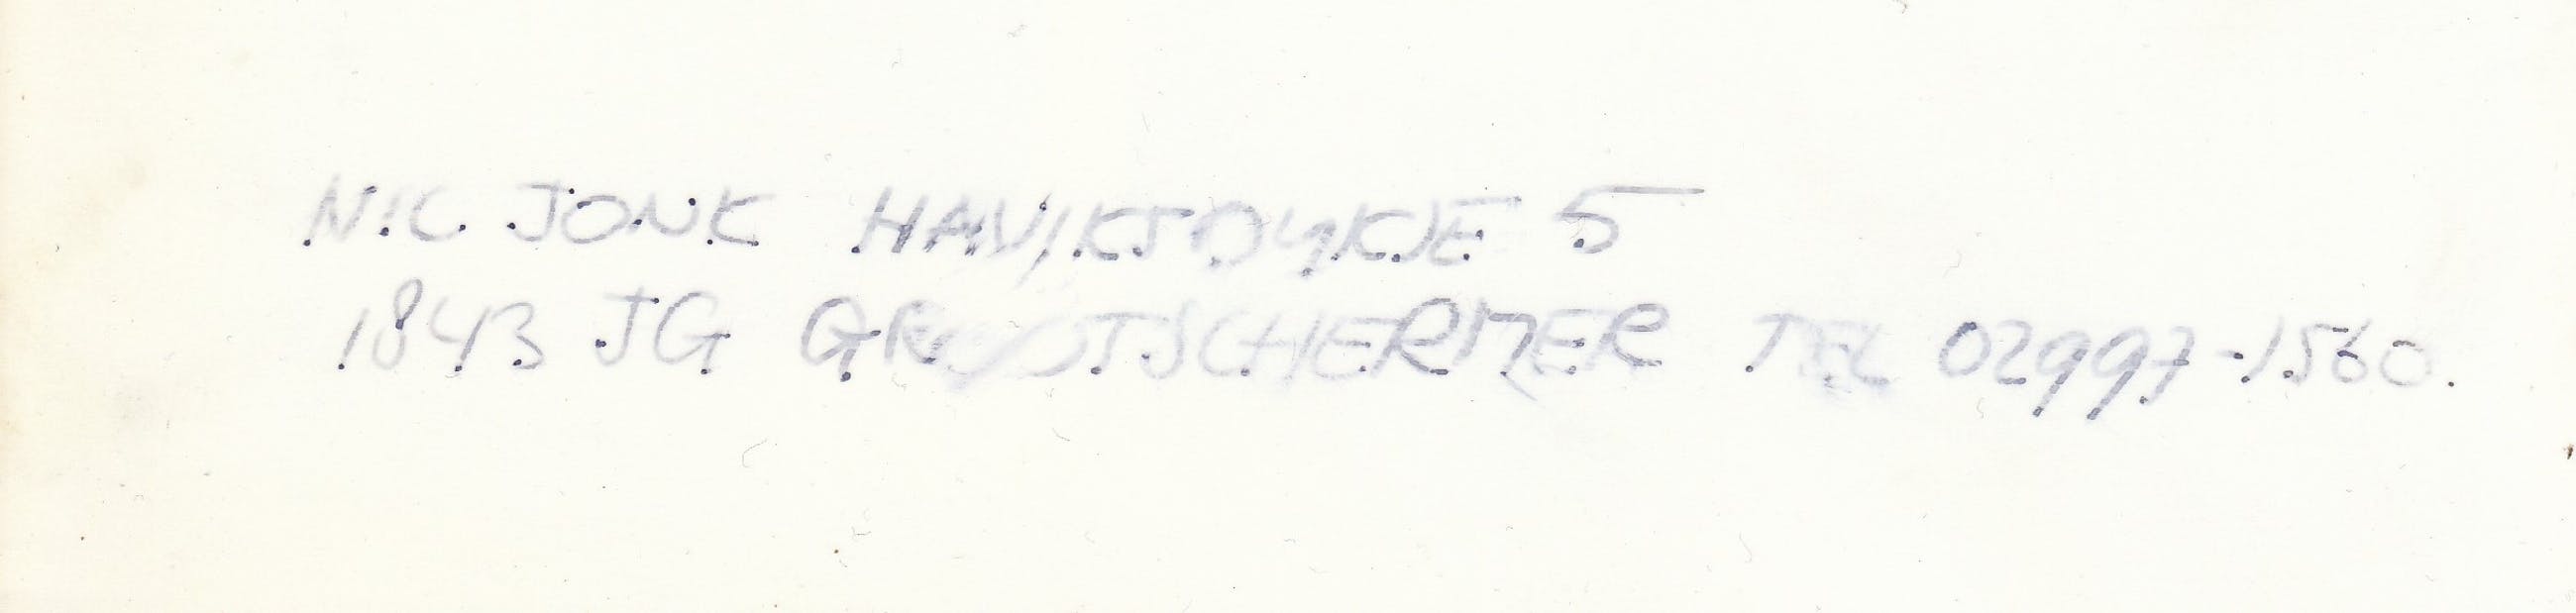 NIC JONK HAVIKSDYKJE 5
1843 JG GROOTSCHERMER TEL 02997-1560.